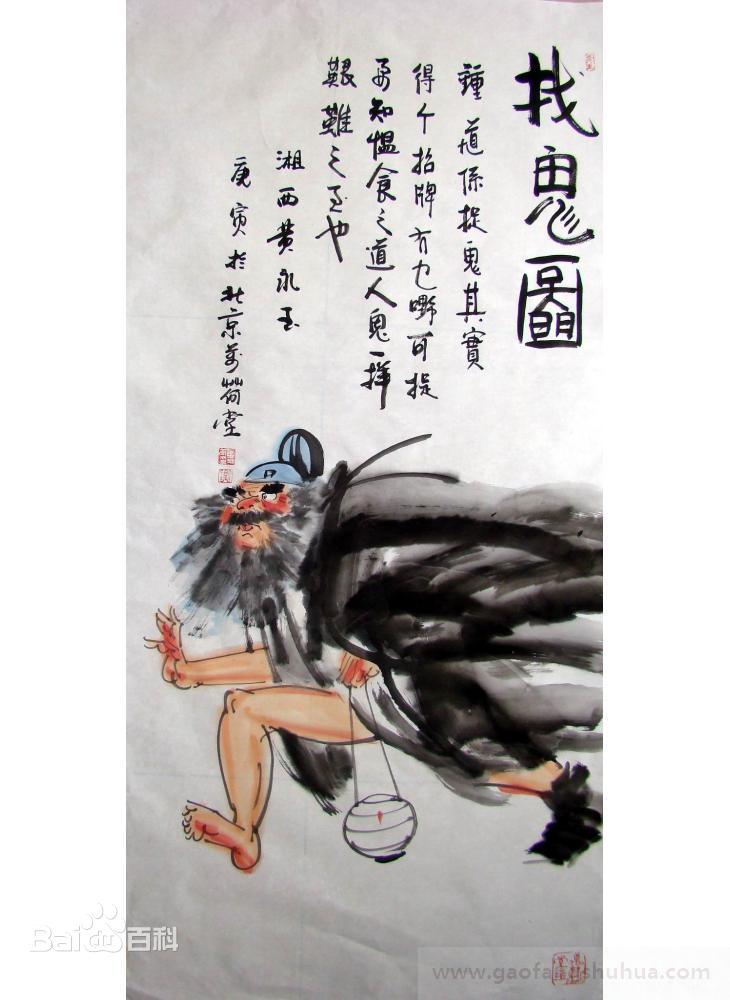 找鬼圖
鍾馗係捉鬼其實
得个招牌冇乜嘢可捉
要知慍食之道人鬼一樣
艱難之至也
湘西黃永玉
庚寅於北京萬荷堂
Bai百科